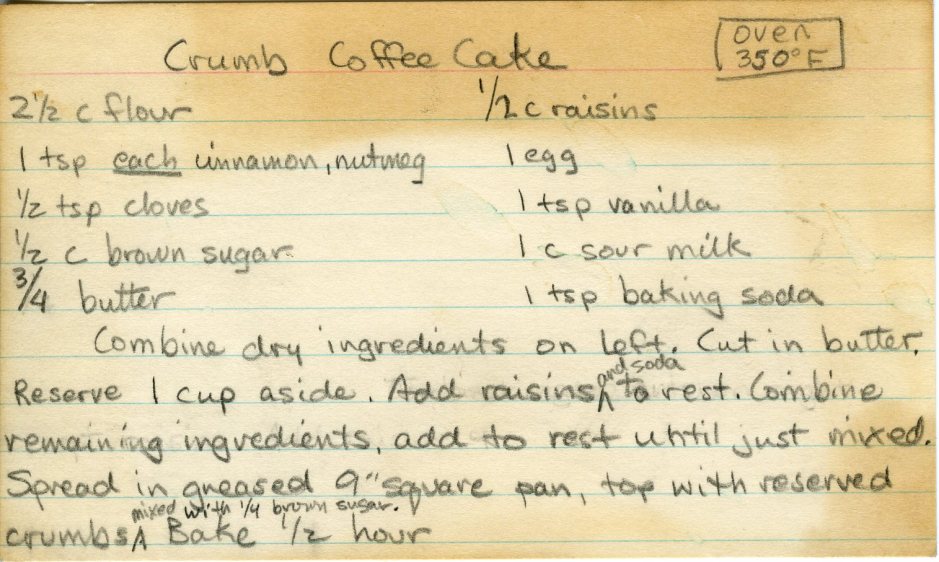 Crumb Coffee Cake
oven
350°F
2 1/2 c flour
1/2 c raisins
1 tsp each cinnamon, nutmeg
1 egg
1/2 tsp cloves
1 tsp vanilla
1/2 c brown sugar
1 c sour milk
3/4 butter
1 tsp baking soda
Combine dry ingredients on left. Cut in butter.
and soda
Reserve 1 cup aside. Add raisins ^ to rest. Combine
remaining ingredients, add to rest until just mixed.
Spread in greased 9" square pan, top with reserved
mixed with 1/4 brown sugar.
crumbs ^ Bake 1/2 hour